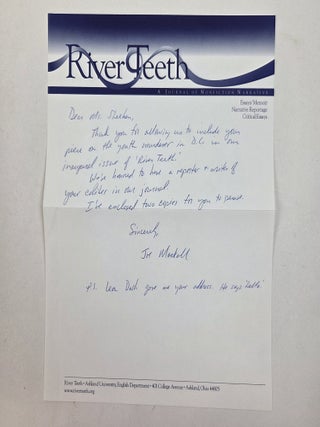 River Teeth
A Journal of Nonfiction Narrative
Essays Memoir
Narrative Reportage
Critical Essays
Dear Mr.
Thank you for allowing us to include your
piece on the youth murderer in D.C. in our
inaugural issue of "River Teeth."
We're honored to have a reporter & writer of
your caliber in our journal.
I've enclosed two copies for you to peruse.
Sincerely,
Joe Mackall
P.S. Leon Dash gave me your address. He says "hello."
River Teeth • Ashland University, English Department • 401 College Avenue • Ashland, Ohio 44805
www.riverteeth.org